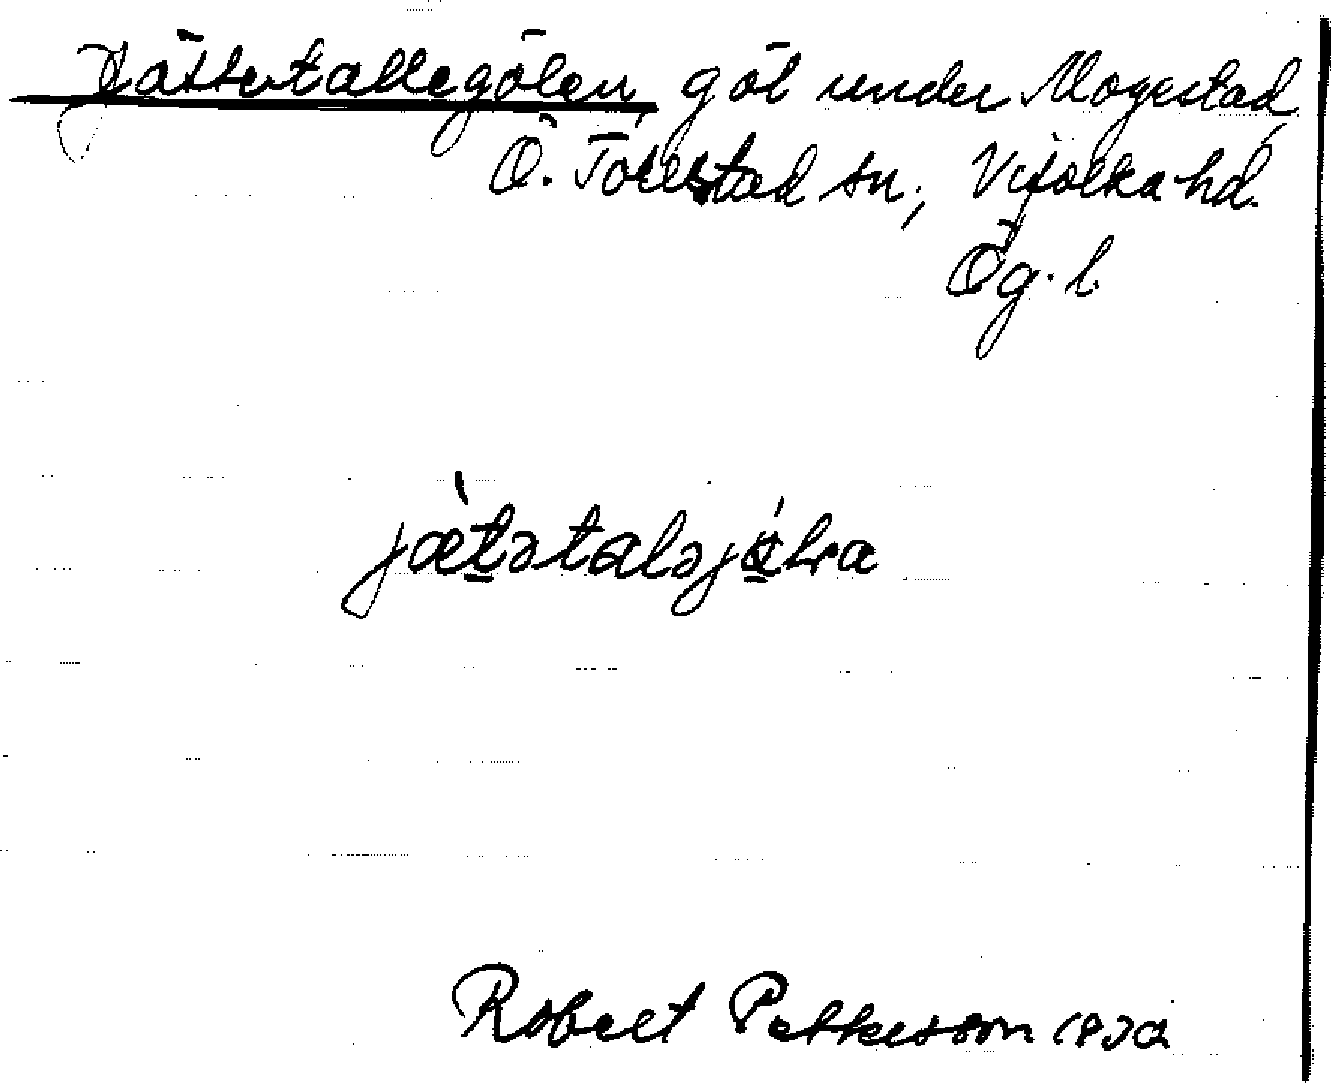 Jättetallegölen, göl under Mogestad,
Ö. Tollstad sn., Vifolka hd.
Ög. l.
jæ̀t̲ətaləjö̲́lɹa
Robert Pettersson